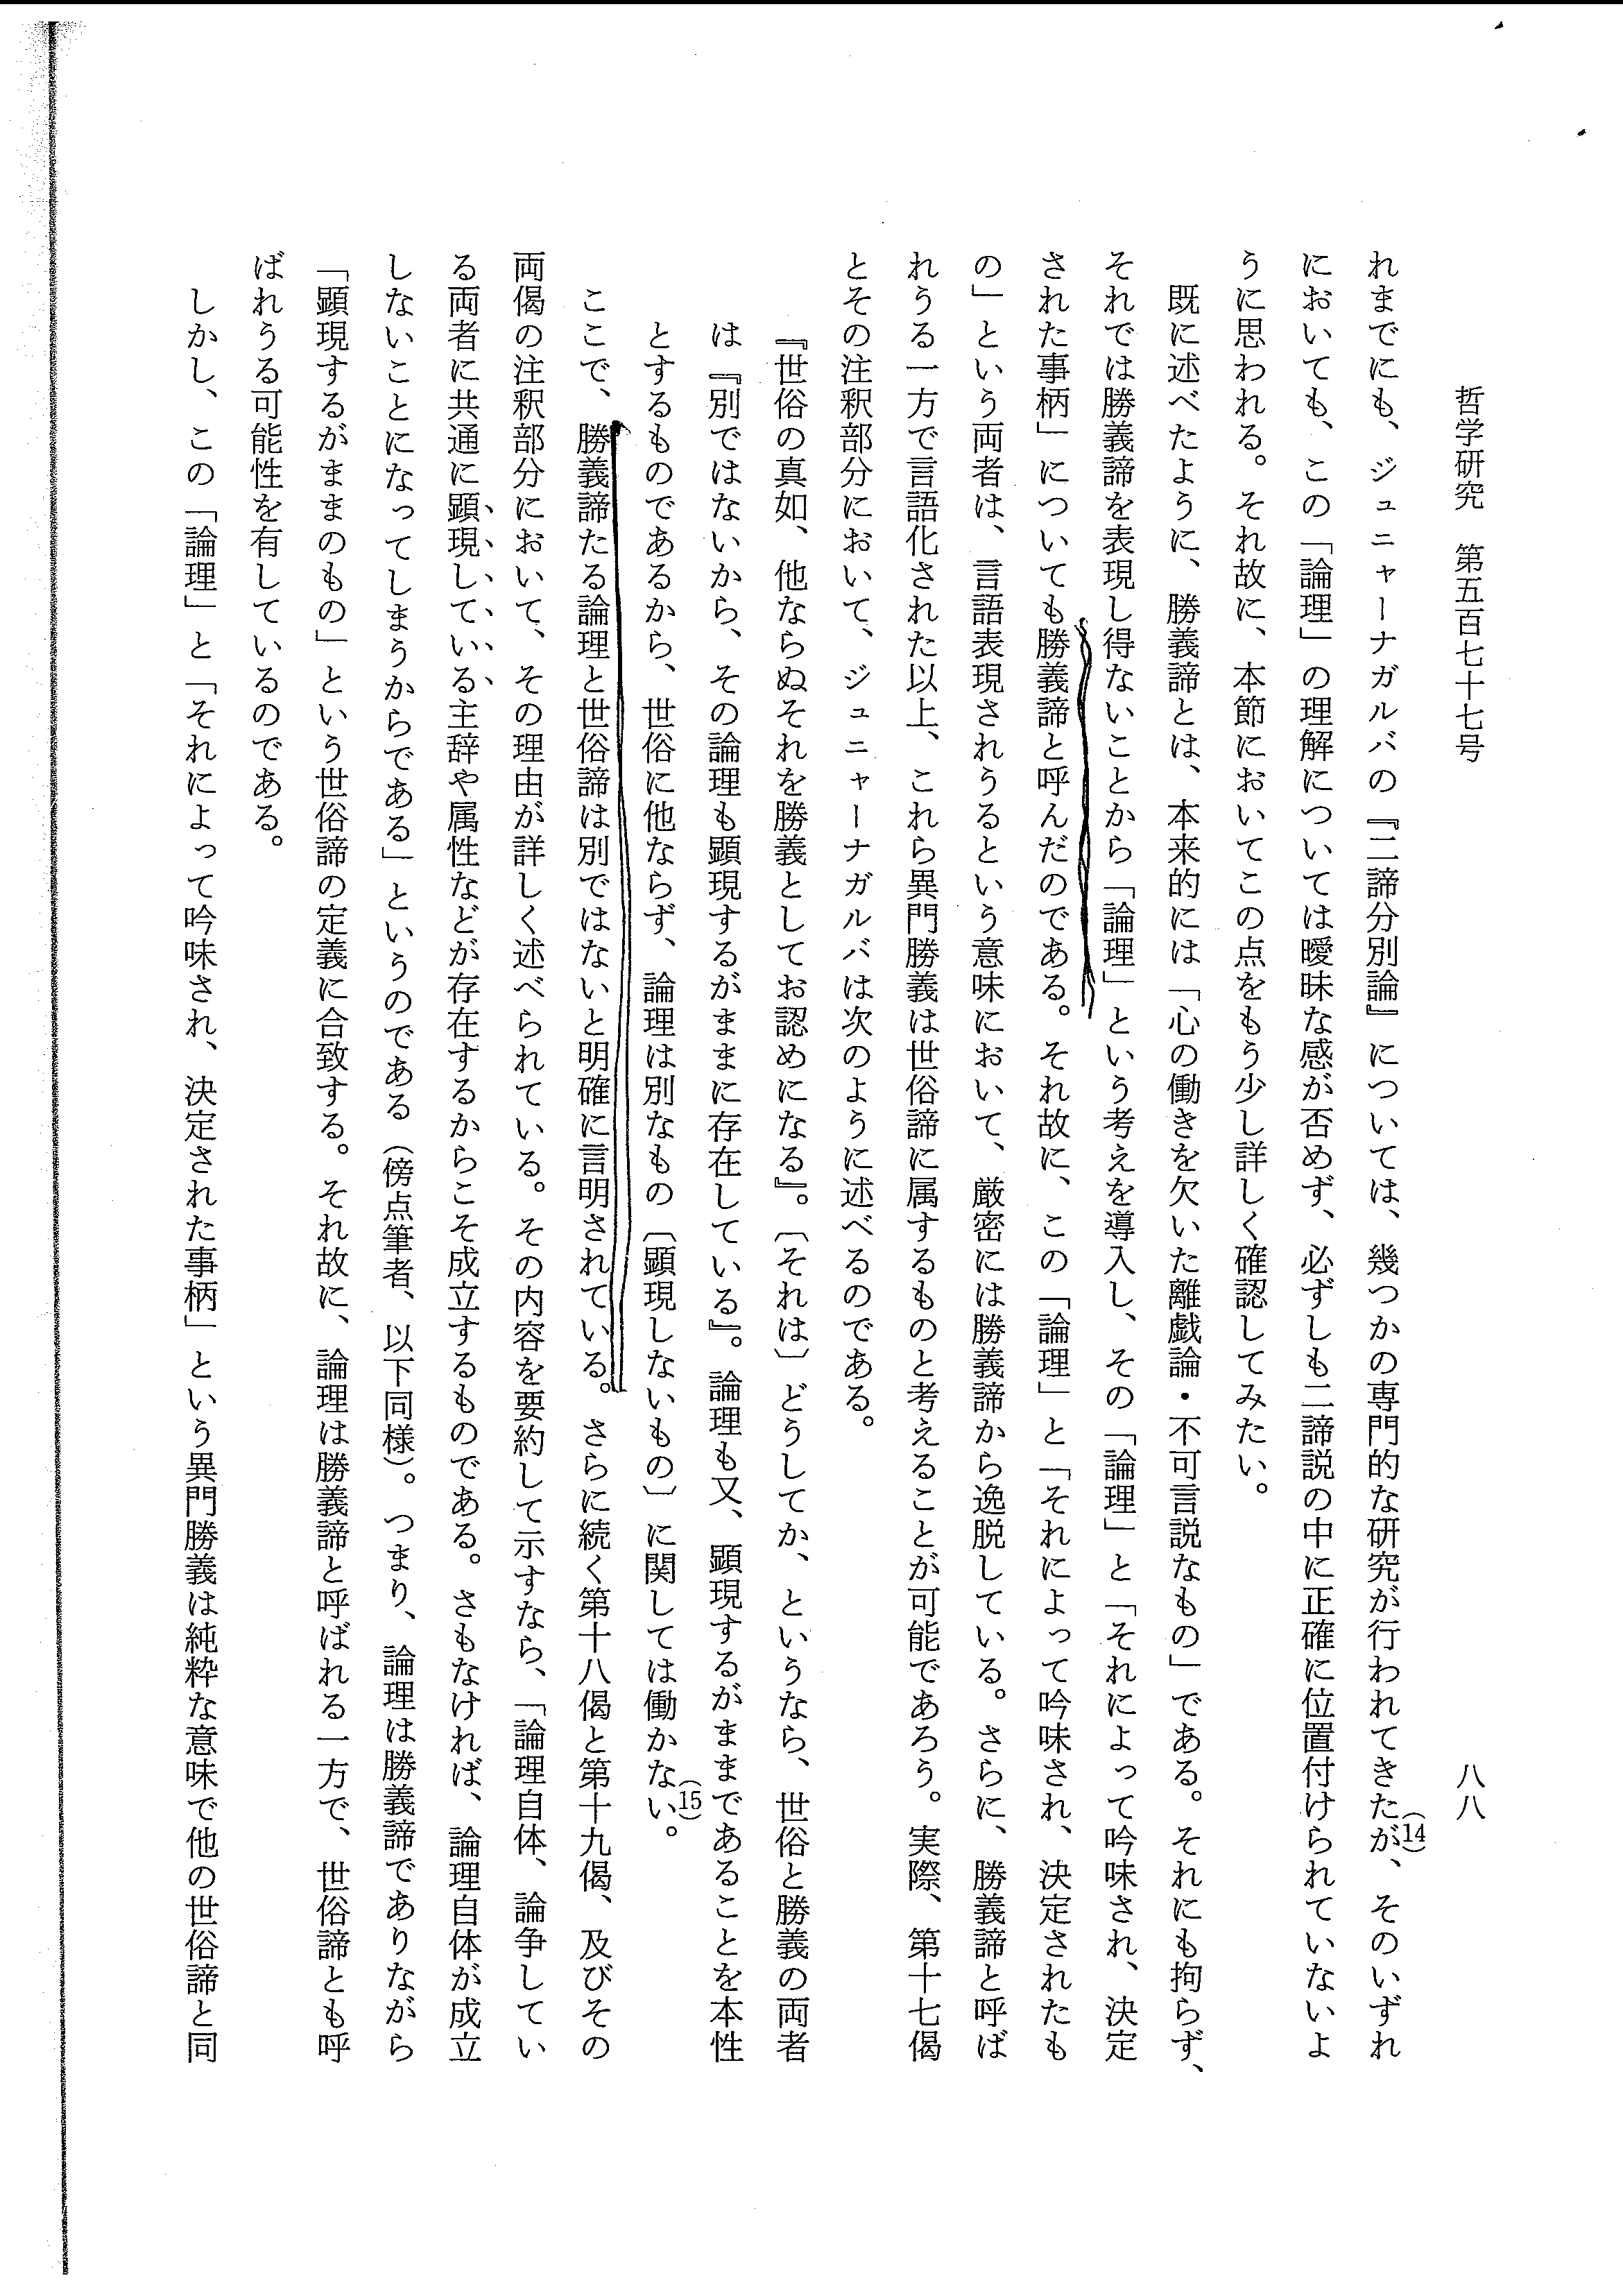 哲学研究　第五百七十七号
八八
れまでにも、ジュニャーナガルバの『二諦分別論』については、幾つかの専門的な研究が行われてきたが(14)、そのいずれ
においても、この「論理」の理解については曖昧な感が否めず、必ずしも二諦説の中に正確に位置付けられていないよ
うに思われる。それ故に、本節においてこの点をもう少し詳しく確認してみたい。
既に述べたように、勝義諦とは、本来的には「心の働きを欠いた離戯論・不可言説なもの」である。それにも拘らず、
それでは勝義諦を表現し得ないことから「論理」という考えを導入し、その「論理」と「それによって吟味され、決定
された事柄」についても勝義諦と呼んだのである。それ故に、この「論理」と「それによって吟味され、決定されたも
の」という両者は、言語表現されうるという意味において、厳密には勝義諦から逸脱している。さらに、勝義諦と呼ば
れうる一方で言語化された以上、これら異門勝義は世俗諦に属するものと考えることが可能であろう。実際、第十七偈
とその注釈部分において、ジュニャーナガルバは次のように述べるのである。
『世俗の真如、他ならぬそれを勝義としてお認めになる』。〔それは〕どうしてか、というなら、世俗と勝義の両者
は『別ではないから、その論理も顕現するがままに存在している』。論理も又、顕現するがままであることを本性
とするものであるから、世俗に他ならず、論理は別なもの〔顕現しないもの〕に関しては働かない(15)。
ここで、勝義諦たる論理と世俗諦は別ではないと明確に言明されている。さらに続く第十八偈と第十九偈、及びその
両偈の注釈部分において、その理由が詳しく述べられている。その内容を要約して示すなら、「論理自体、論争してい
る両者に共通に顕現している主辞や属性などが存在するからこそ成立するものである。さもなければ、論理自体が成立
しないことになってしまうからである」というのである（傍点筆者、以下同様）。つまり、論理は勝義諦でありながら
「顕現するがままのもの」という世俗諦の定義に合致する。それ故に、論理は勝義諦と呼ばれる一方で、世俗諦とも呼
ばれうる可能性を有しているのである。
しかし、この「論理」と「それによって吟味され、決定された事柄」という異門勝義は純粋な意味で他の世俗諦と同